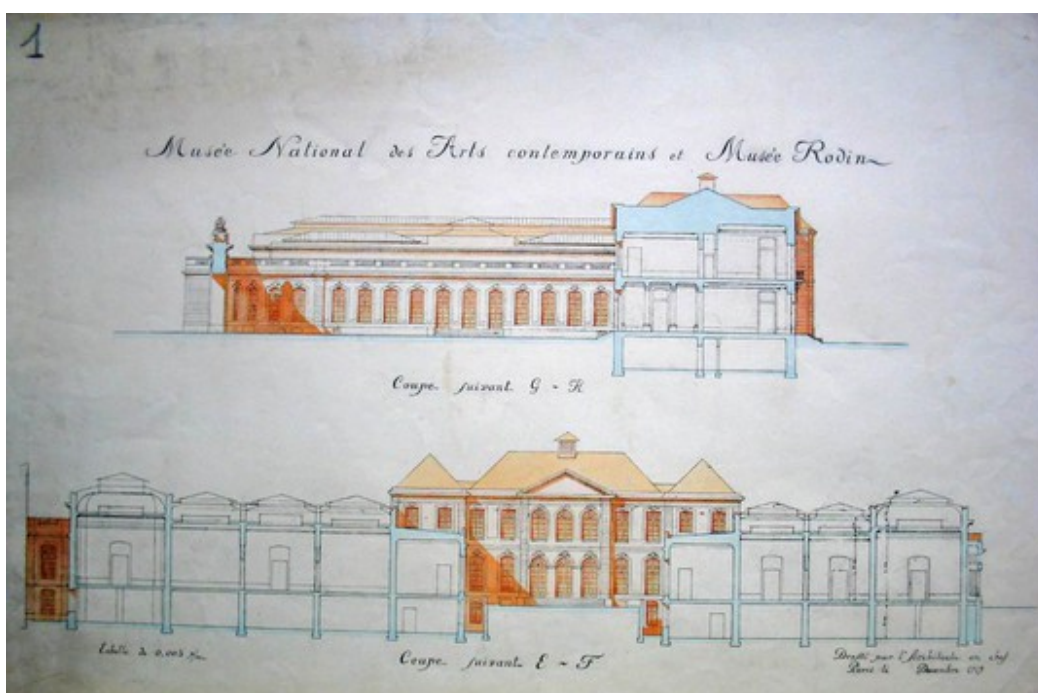 1
Musée National des Arts contemporains et Musée Rodin
Coupe suivant G - H
Echelle de 0,005 p/m
Coupe suivant E - F
Dressé par l'Architecte en chef
Paris le Décembre